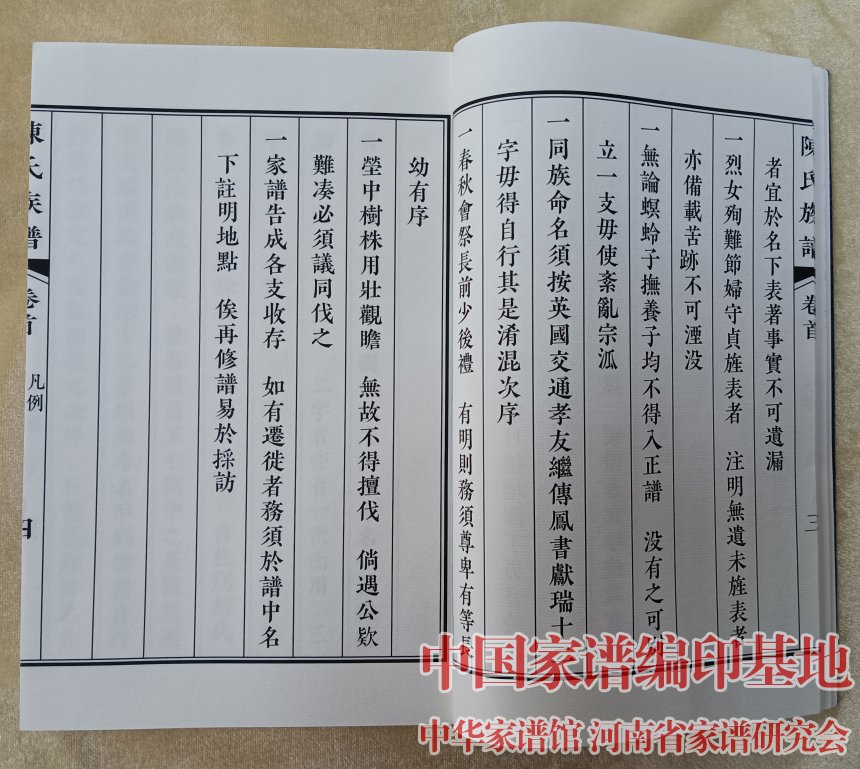 陳氏族譜
卷首
三
者宜於名下表著事實不可遺漏
一烈女殉難節婦守貞旌表者 注明無遺未旌表者
亦備載苦跡不可湮没
一無論螟蛉子撫養子均不得入正譜 没有之可
立一支毋使紊亂宗泒
一同族命名須按英國交通孝友繼傳鳳書獻瑞十
字毋得自行其是淆混次序
一春秋會祭長前少後禮 有明則務須尊卑有等長
幼有序
一塋中樹株用壯觀瞻 無故不得擅伐 倘遇公欵
難湊必須議同伐之
一家譜告成各支收存 如有遷徙者務須於譜中名
下註明地點 俟再修譜易於採訪
陳氏族譜
卷首
凡例
四
中国家谱编印基地
中华家谱馆 河南省家谱研究会